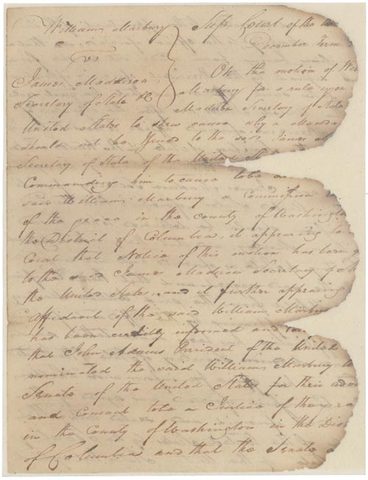 William Marbury
vs
James Maddison
Secretary of State
Supr. Court of the
December Term
On the motion of
Marbury for a rule upon
Secretary of State
United States to shew cause why a Mandamus
should not be issued to the said James
Secretary of State of the United
Commanding him to cause to be
said William Marbury a Commission
of the peace in the County of Washington
the District of Columbia it appearing to
Court that Notice of this motion has been
to the said James Madison Secretary of
the United States and it further appearing
affidavit of the said William Marbury
has been credibly informed and
that John Adams President of the United
nominated the said William Marbury to
Senate of the United States for their
and Consent to be a Justice of the
in the County of Washington in the Dis
of Columbia and that the Senate